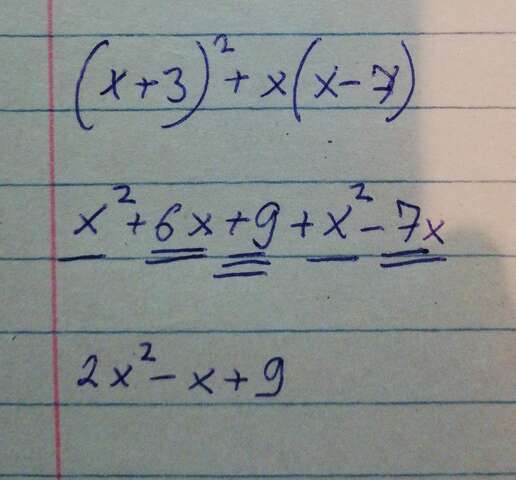 (x+3)² + x(x-7)
x² + 6x + 9 + x² - 7x
2x² - x + 9